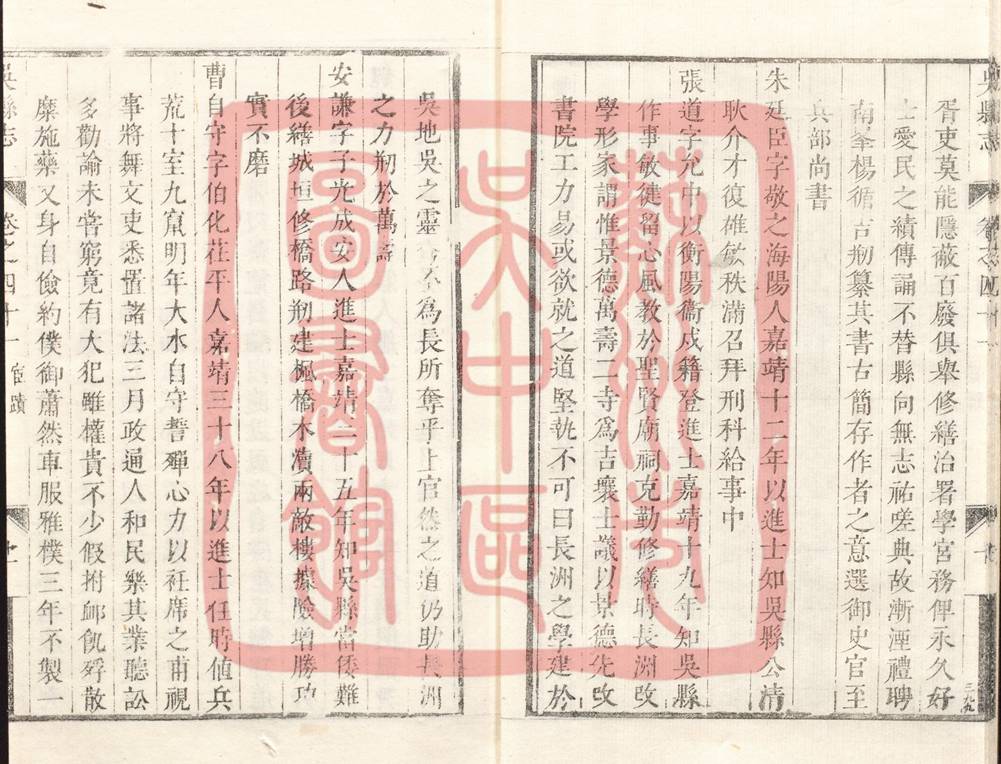 胥吏莫能隱蔽百廢俱舉修繕治署學宮務俾永久好
士愛民之績傳誦不替縣向無志祐嗟典故漸湮禮聘
南峯楊循吉刱纂其書古簡存作者之意選御史官至
兵部尚書
朱廷臣字敬之海陽人嘉靖十二年以進士知吳縣公清
耿介才復雄敏秩滿召拜刑科給事中
張道字允中以衡陽衞戍籍登進士嘉靖十九年知吳縣
作事敏徤留心風教於聖賢廟祠克勤修繕時長洲改
學形家謂惟景德萬壽二寺爲吉壤士議以景德先改
書院工力易或欲就之道堅執不可曰長洲之學建於
吳地吳之靈 不爲長所奪乎上官然之道仍助長洲
之力刱於萬壽
安謙字子光成安人進士嘉靖二十五年知吳縣當倭難
後繕城垣修橋路刱建楓橋木瀆兩敵樓據險增勝功
實不磨
曹自守字伯化茌平人嘉靖三十八年以進士任時值兵
荒十室九窳明年大水自守誓殫心力以衽席之甫視
事將舞文吏悉置諸法三月政通人和民樂其業聽訟
多勸諭未嘗窮竟有大犯雖權貴不少假拊邺飢殍散
糜施藥又身自儉約僕御蕭然車服雅樸三年不製一
吳縣志
卷之四十一 宦蹟
十一
吳縣志
三九
蘇州市
吳中區
圖書館